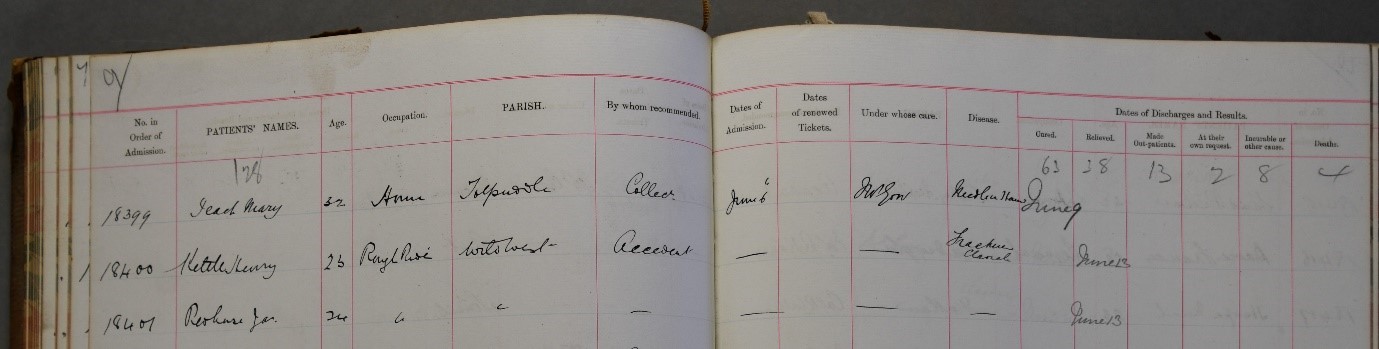 9/
No. in Order of Admission. PATIENTS' NAMES. Age. Occupation. PARISH. By whom recommended. Dates of Admission. Dates of renewed Tickets. Under whose care. Disease. Dates of Discharges and Results.
Cured. Relieved. Made Out-patients. At their own request. Incurable or other cause. Deaths.
128 63 38 13 2 8 4
18399 Mary 32 Home Tolpuddle Collecn. June 6 Needle in Hand June 9
18400 Kettle Henry 23 Accident — — Fracture Clavicle June 13
18401 Jas. 24 " " — — — — June 13